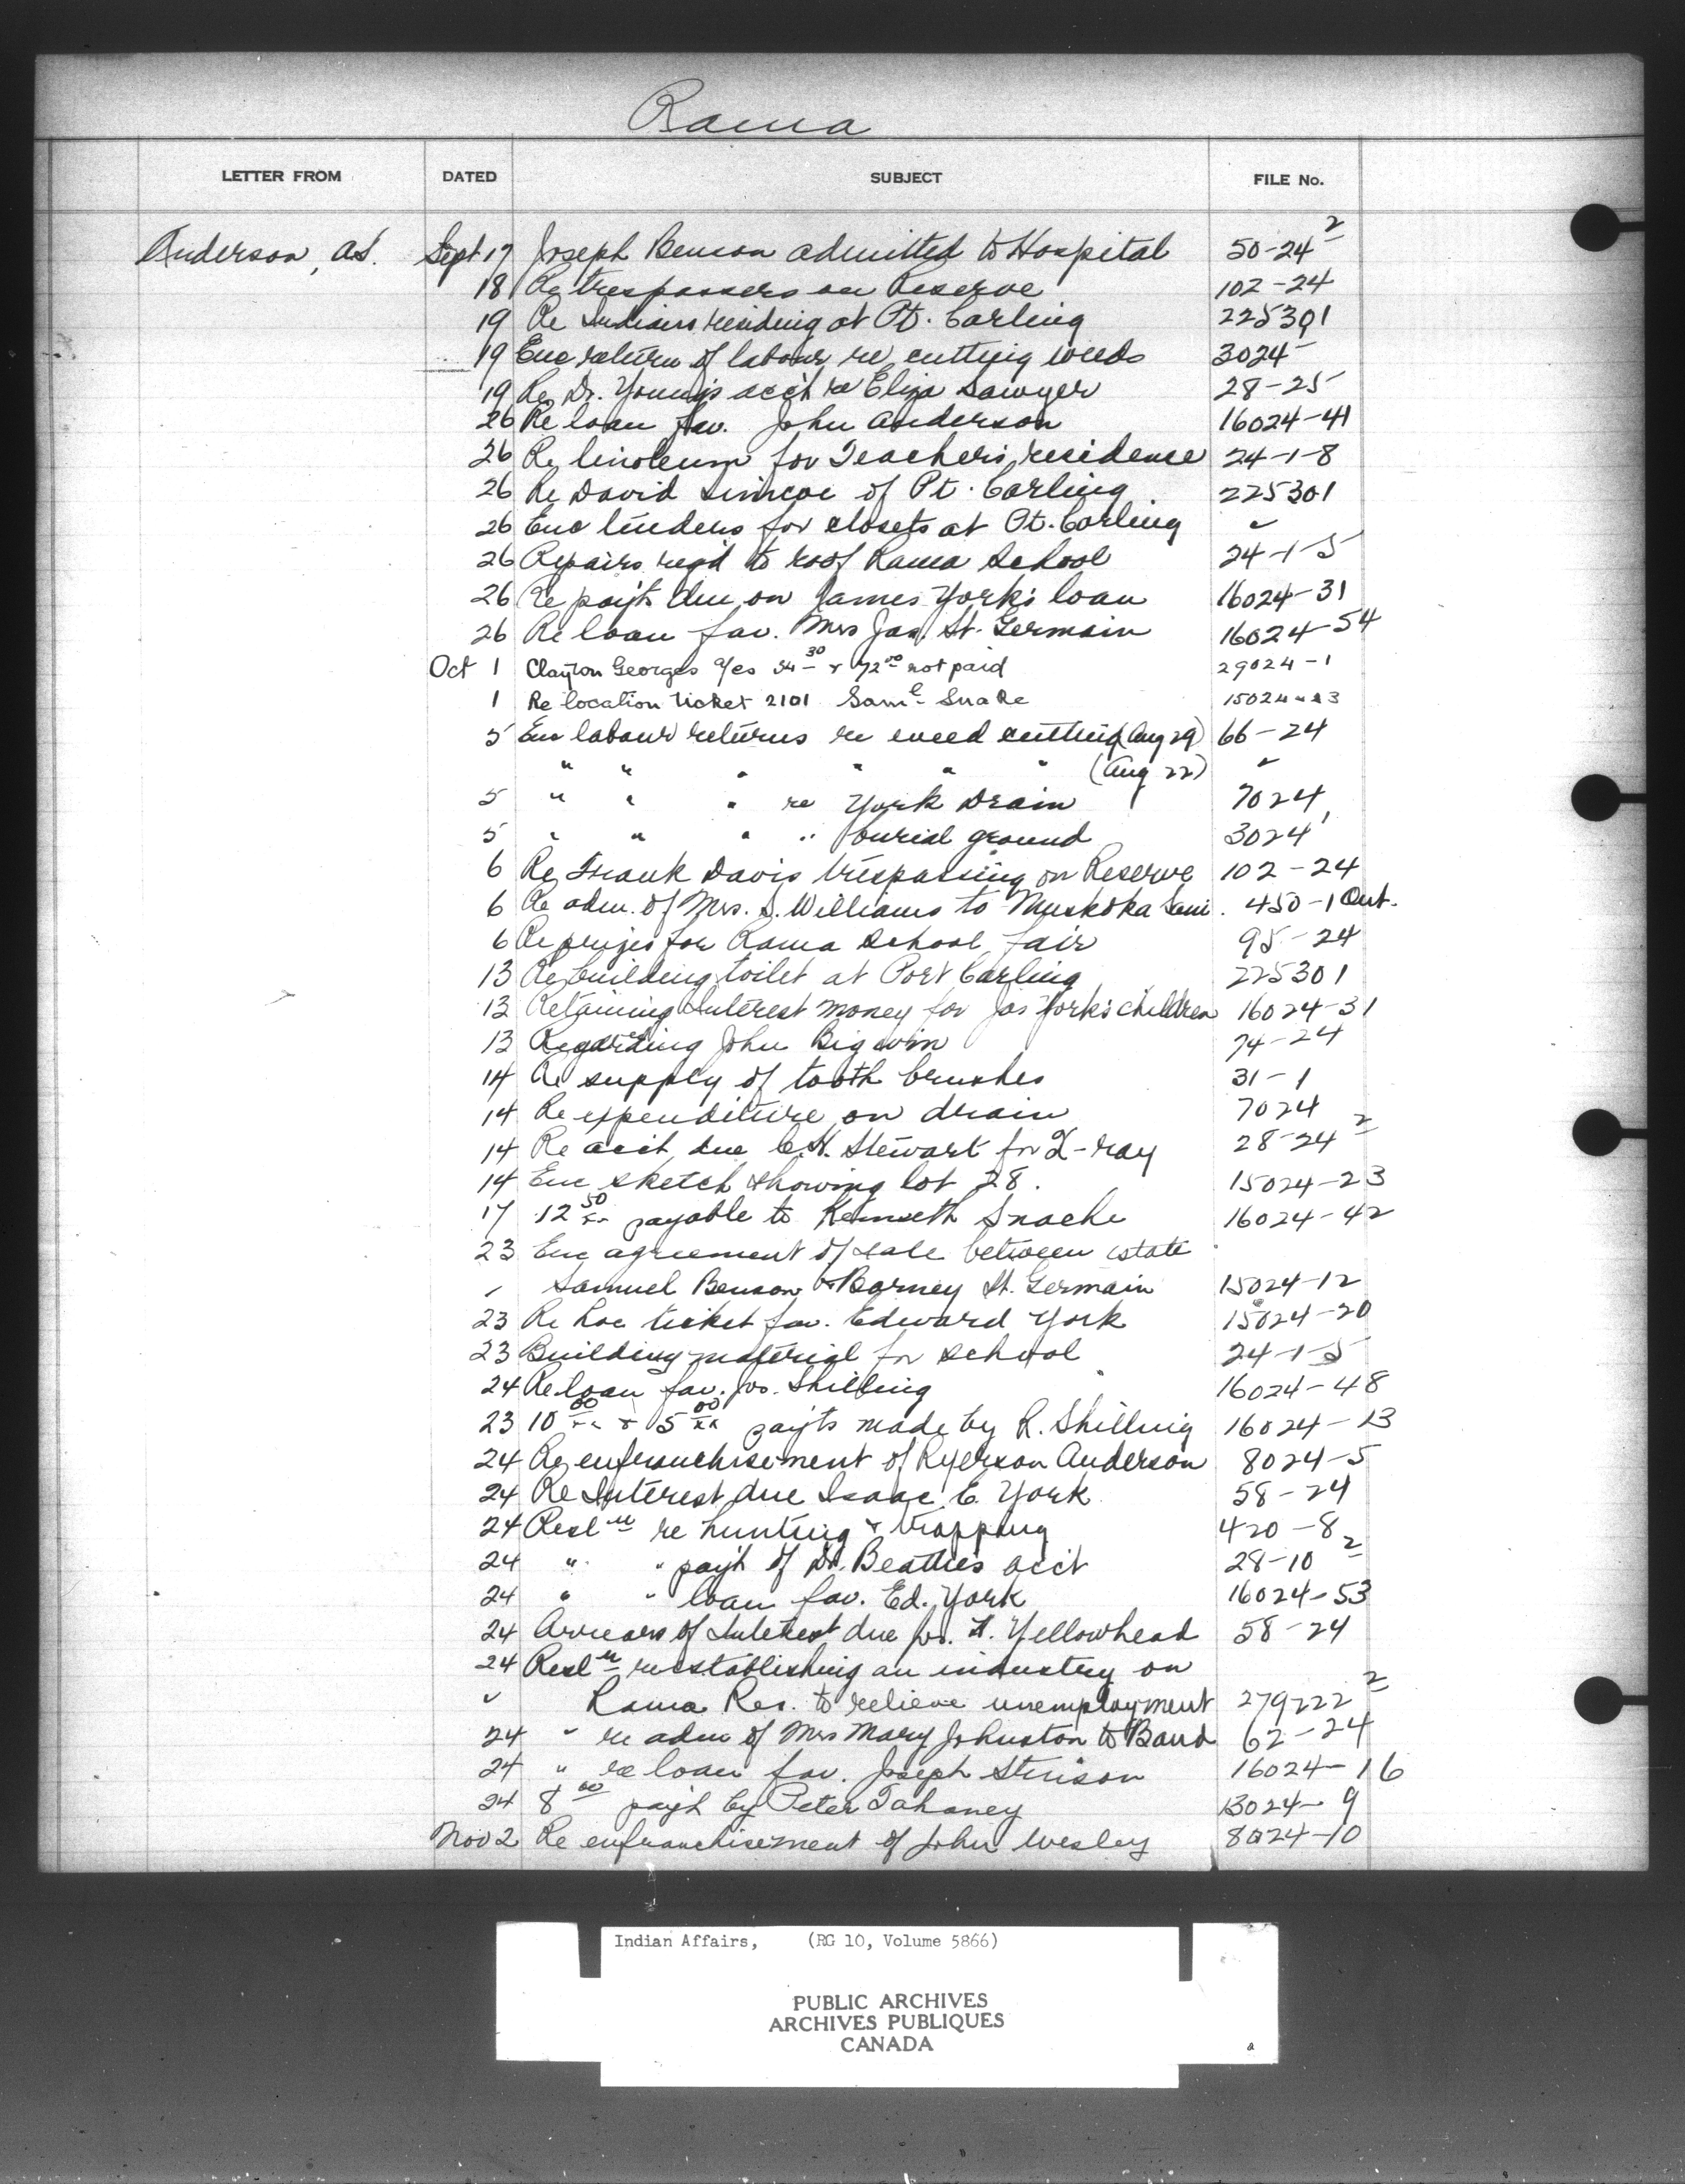 Rama
LETTER FROM DATED SUBJECT FILE No.
Anderson, A.S. Sept 17 Joseph Benson admitted to Hospital 50-24 2
18 Re trespassers on Reserve 102-24
19 Re Indians residing at Pt. Carling 225301
19 Enc return of labour re cutting weeds 3024
19 Re Dr. Young's acct re Eliza Sawyer 28-25
26 Re loan fav. John Anderson 16024-41
26 Re linoleum for Teacher's residence 24-1-8
26 Re David Simcoe of Pt. Carling. 225301
26 Enc tenders for closets at Pt. Carling "
26 Repairs reqd to roof Rama School 24-1-5
26 Re payts due on James York's loan 16024-31
26 Re loan fav. Mrs Jas. St. Germain 16024-54
Oct 1 Clayton Georges a/cs 34 30 & 72 00 not paid 29024-1
1 Re location ticket 2101 Saml Snake 15024-23
5 Enc labour returns re weed cutting (Aug 29) 66-24
" " " " " " (Aug 22) "
5 " " " re York Drain 7024
5 " " " " burial ground 3024
6 Re Frank Davis trespassing on Reserve 102-24
6 Re adm. of Mrs. S. Williams to Muskoka Sani. 450-1 Ont.
6 Re prizes for Rama School fair 95-24
13 Re building toilet at Port Carling 225301
13 Retaining Interest money for Jas York's children 16024-31
13 Regarding John Bigwin 74-24
14 Re supply of tooth brushes 31-1
14 Re expenditure on drain 7024
14 Re acct due C.H. Stewart for X-ray 28-24 2
14 Enc sketch showing lot 28. 15024-23
17 12 50 payable to Kenneth Snache 16024-42
23 Enc agreement of sale between estate
" Samuel Benson & Barney St. Germain 15024-12
23 Re Loc ticket fav. Edward York 15024-20
23 Building material for school 24-1-5
24 Re loan fav. Jos. Shilling 16024-48
23 10 00 & 5 00 payts made by R. Shilling 16024-13
24 Re enfranchisement of Ryerson Anderson 8024-5
24 Re Interest due Isaac E. York 58-24
24 Resln re hunting & trapping 420-8
24 " " payt of Dr. Beatties acct 28-10 2
24 " " loan fav. Ed. York 16024-53
24 Arrears of Interest due Jos. H. Yellowhead 58-24
24 Resln re establishing an industry on
" Rama Res. to relieve unemployment 279222 2
24 " re adm of Mrs Mary Johnston to Band 62-24
24 " re loan fav. Joseph Stinson 16024-16
24 8 00 payt by Peter Tahaney 13024-9
Nov 2 Re enfranchisement of John Wesley 8024-10
Indian Affairs, (RG 10, Volume 5866)
PUBLIC ARCHIVES
ARCHIVES PUBLIQUES
CANADA
a